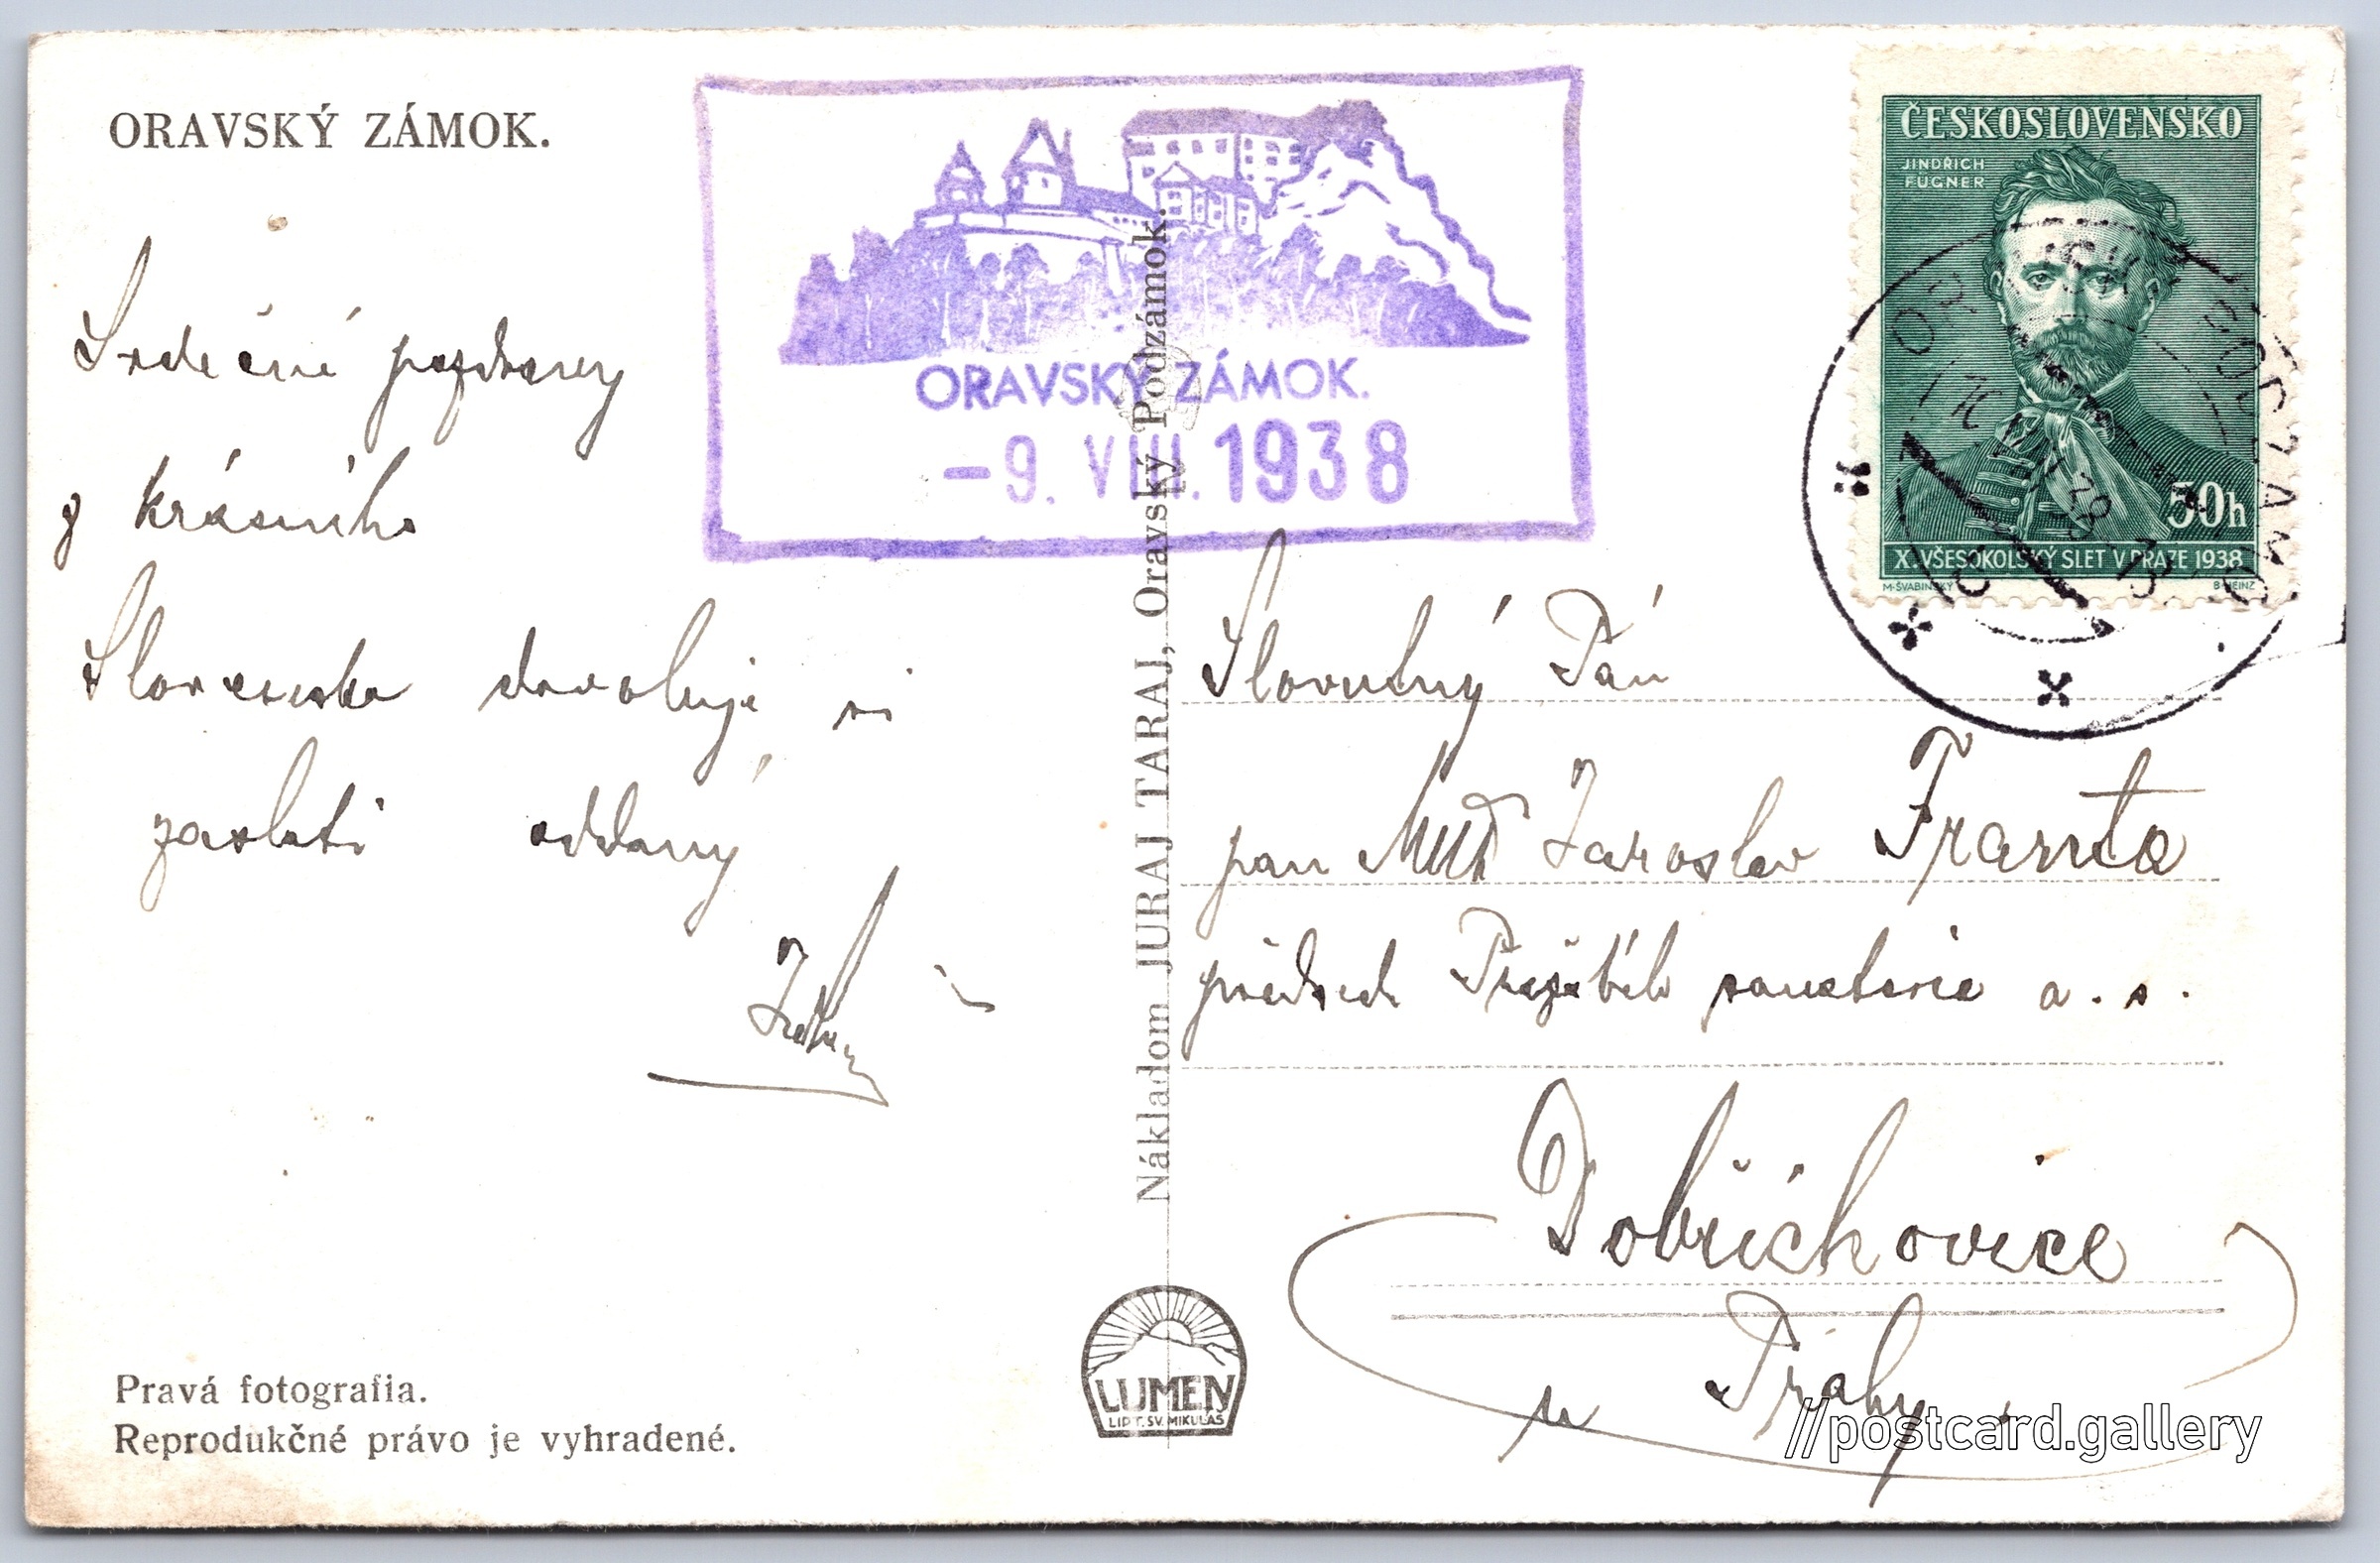 ORAVSKÝ ZÁMOK.
Srdečné pozdravy
z krásného
Slovenska dovoluje si
zaslati oddaný
Pravá fotografia.
Reprodukčné právo je vyhradené.
ORAVSKÝ ZÁMOK.
-9. VIII. 1938
Nákladom JURAJ TARAJ, Oravský Podzámok.
LUMEN
LIPT. SV. MIKULÁŠ
ČESKOSLOVENSKO
JINDŘICH
FÜGNER
50h
X. VŠESOKOLSKÝ SLET V PRAZE 1938
M. ŠVABINSKÝ
B. HEINZ
Slovutný Pán
pan MUDr Jaroslav Franta
předseda sanatoria a. s.
Dobřichovice
u Prahy.
//postcard.gallery